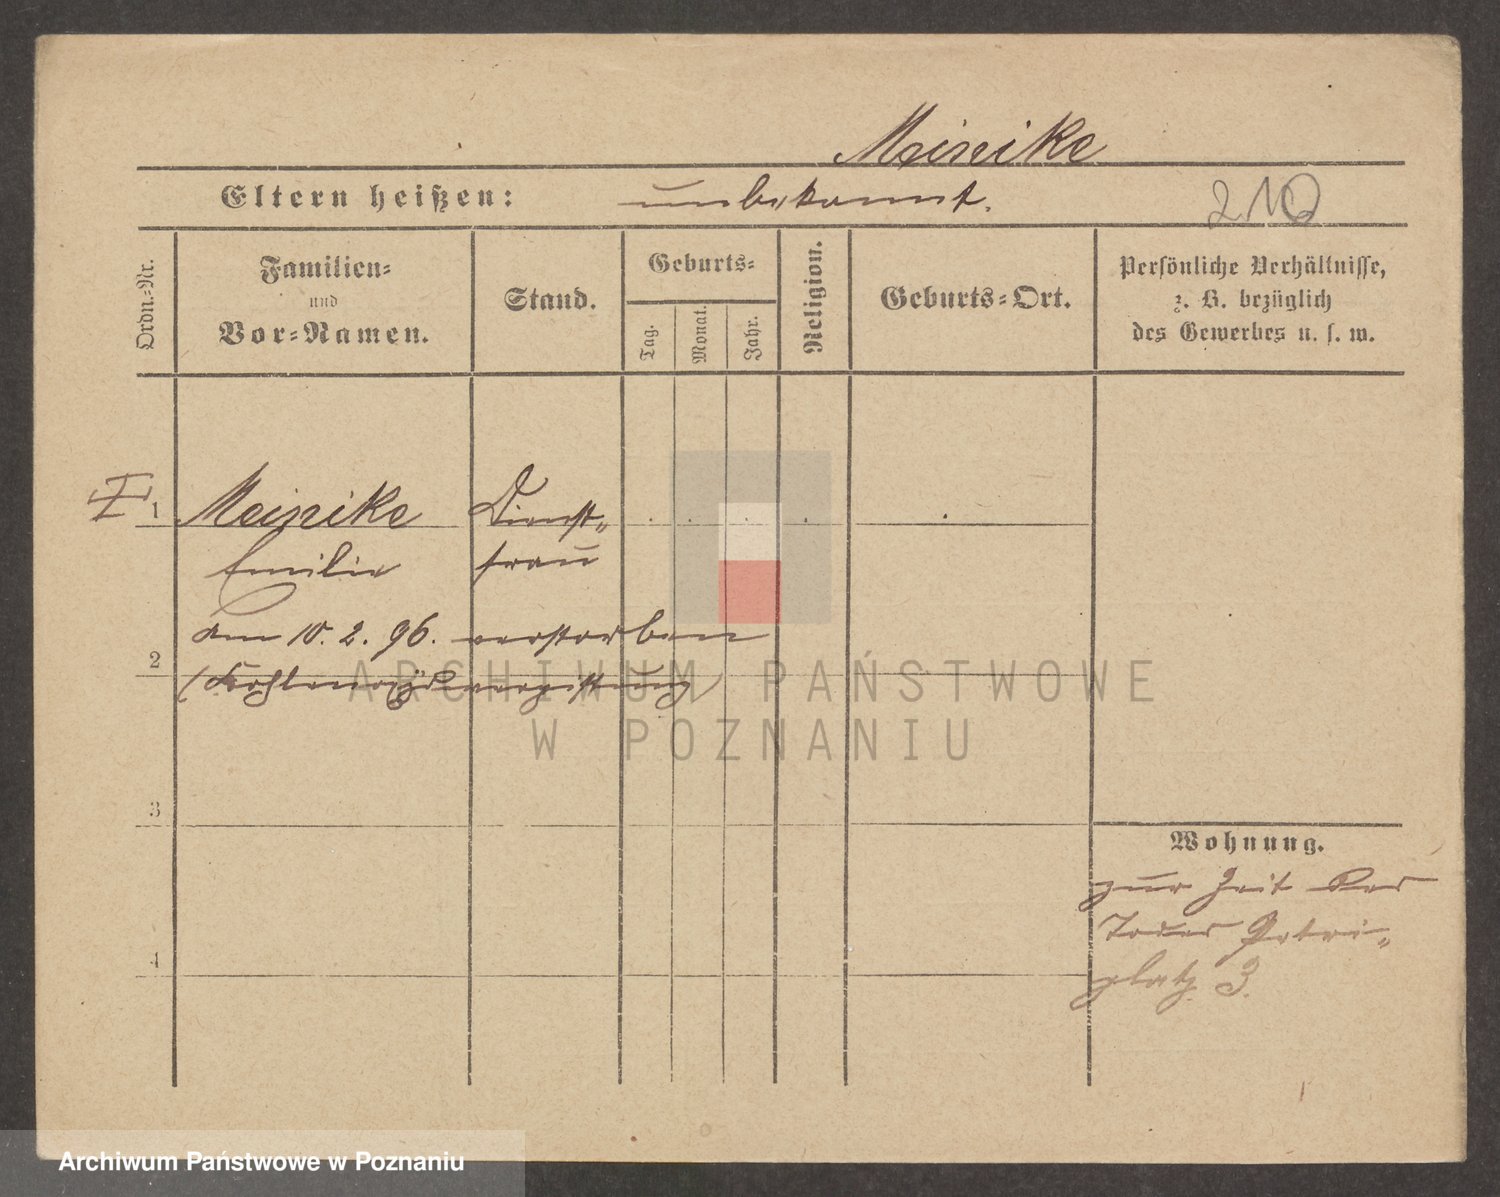 Meinike
Eltern heißen: unbekannt. 210
Ordn.=Nr.
Familien=
und
Vor=Namen.
Stand.
Geburts=
Tag.
Monat.
Jahr.
Religion.
Geburts=Ort.
Persönliche Verhältnisse,
z. B. bezüglich
des Gewerbes u. s. w.
1 Meinike Dienst=
Emilie frau
am 10. 2. 96. verstorben
2
(Kohlenoxydvergiftung)
ARCHIWUM PAŃSTWOWE
W POZNANIU
3
Wohnung.
zur Zeit des
Todes Petri=
4
platz 3.
Archiwum Państwowe w Poznaniu